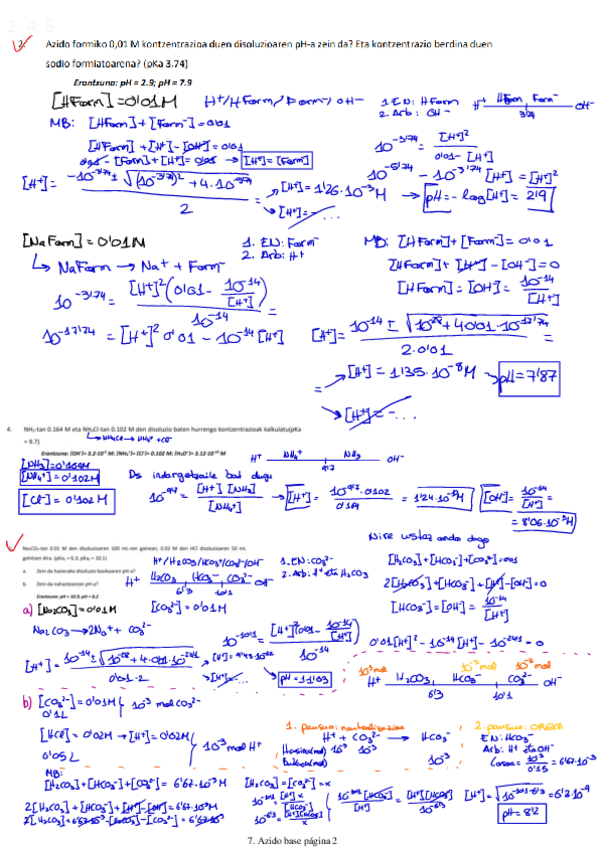 2, 4, 5
2. Azido formiko 0,01 M kontzentrazioa duen disoluzioaren pH-a zein da? Eta kontzentrazio berdina duen
sodio formiatoarena? (pKa 3.74)
Erantzuna: pH = 2.9; pH = 7.9
[HForm] = 0'01M H⁺/HForm/Form⁻/OH⁻ 1. EN: HForm
2. Arb: OH⁻
H⁺ HForm Form⁻ OH⁻
3'74
MB: [HForm] + [Form⁻] = 0'01
[HForm] + [H⁺] - [OH⁻] = 0'01
0'01 - [Form] + [H⁺] = 0'01 → [H⁺] = [Form]
10^-3'74 = [H⁺]² / 0'01 - [H⁺]
10^-5'74 - 10^-3'74 [H⁺] = [H⁺]²
[H⁺] = -10^-3'74 ± √(10^-3'74)² + 4·10^-5'74 / 2 = [H⁺] = 1'26·10⁻³M → pH = -log[H⁺] = 2'9
[H⁺] = -...
[NaForm] = 0'01M 1. EN: Form⁻
2. Arb: H⁺
MB: [HForm] + [Form⁻] = 0'01
↳ NaForm → Na⁺ + Form⁻
[HForm] + [H⁺] - [OH⁻] = 0
[HForm] = [OH⁻] = 10⁻¹⁴ / [H⁺]
10^-3'74 = [H⁺]² (0'01 - 10⁻¹⁴/[H⁺]) / 10⁻¹⁴ =
10^-17'74 = [H⁺]² 0'01 - 10⁻¹⁴ [H⁺]
[H⁺] = 10⁻¹⁴ ± √10⁻²⁸ + 4·0'01·10^-17'74 / 2·0'01 =
= [H⁺] = 1'35·10⁻⁸M → pH = 7'87
[H⁺] = -...
4. NH₃-tan 0.164 M eta NH₄Cl-tan 0.102 M den disoluzio baten hurrengo kontzentrazioak kalkulatu(pKa
= 9.7)
↳ NH₄Cl → NH₄⁺ + Cl⁻
Erantzuna: [OH⁻]= 3.2·10⁻⁵ M; [NH₄⁺]= [Cl⁻]= 0.102 M; [H₃O⁺]= 3.12·10⁻¹⁰ M
[NH₃] = 0'164M
[NH₄⁺] = 0'102M
[Cl⁻] = 0'102 M
Ds indargetzaile bat dugu
H⁺ NH₄⁺ NH₃ OH⁻
9'7
10^-9'7 = [H⁺] [NH₃] / [NH₄⁺] → [H⁺] = 10^-9'7·0'102 / 0'164 = 1'24·10⁻¹⁰M [OH⁻] = 10⁻¹⁴ / [H⁺] =
= 8'06·10⁻⁵M
Nire ustez ondo dago
Na₂CO₃-tan 0.01 M den disoluzioaren 100 mL-ren gainean, 0.02 M den HCl disoluzioaren 50 mL
gehitzen dira. (pKa₁ = 6.3; pKa₂ = 10.1)
a. Zein da hasierako disoluzio basikoaren pH-a?
b. Zein da nahastearen pH-a?
Erantzuna: pH = 10.9; pH = 8.2
H⁺/H₂CO₃/HCO₃⁻/CO₃²⁻/OH⁻
H⁺ H₂CO₃ HCO₃⁻ CO₃²⁻ OH⁻
6'3 10'1
1. EN: CO₃²⁻
2. Arb: H⁺ eta H₂CO₃
[H₂CO₃] + [HCO₃⁻] + [CO₃²⁻] = 0'01
2[H₂CO₃] + [HCO₃⁻] + [H⁺] - [OH⁻] = 0
[HCO₃⁻] = [OH⁻] = 10⁻¹⁴ / [H⁺]
a) [Na₂CO₃] = 0'01M [CO₃²⁻] = 0'01M
Na₂CO₃ → 2Na⁺ + CO₃²⁻
10^-10'1 = [H⁺]² (0'01 - 10⁻¹⁴/[H⁺]) / 10⁻¹⁴
0'01[H⁺]² - 10⁻¹⁴ [H⁺] - 10^-24'1 = 0
[H⁺] = 10⁻¹⁴ ± √10⁻²⁸ + 4·0'01·10^-24'1 / 0'01·2
[H⁺] = -...
pH = 11'03
10⁻³mol 10⁻³mol 10⁻³mol
H⁺ H₂CO₃ HCO₃⁻ CO₃²⁻ OH⁻
6'3 10'1
b) [CO₃²⁻] = 0'01M
0'1L
10⁻³ mol CO₃²⁻
[HCl] = 0'02M → [H⁺] = 0'02M
0'05L
10⁻³ mol H⁺
1. pausua: neutralizazioa
H⁺ + CO₃²⁻ → HCO₃⁻
Hasieran 10⁻³ 10⁻³
10⁻³
2. pausua: OREKA
EN: HCO₃⁻
Arb: H⁺ eta OH⁻
= 10⁻³ / 0'15 = 6'67·10⁻³
MB:
[H₂CO₃] + [HCO₃⁻] + [CO₃²⁻] = 6'67·10⁻³M
2[H₂CO₃] + [HCO₃⁻] + [H⁺] - [OH⁻] = 6'67·10⁻³M
[H₂CO₃] = [CO₃²⁻] = x
[H⁺] = √10^-10'1-6'3 = 6'3·10⁻⁹
pH = 8'2
7. Azido base página 2